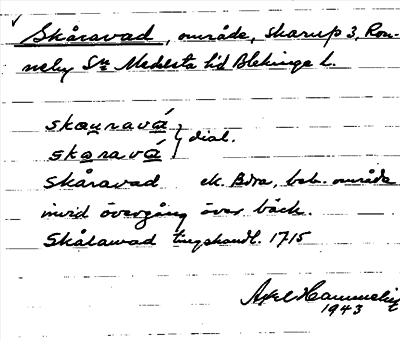 Skåravad, område, Skarup 3, Ron-
neby Sn Medelsta hd Blekinge l.
skauravá
skaravá } dial.
Skåravad ek. Bdra, beb. område
invid övergång över bäck.
Skålawad tingshandl. 1715
Axel
1943